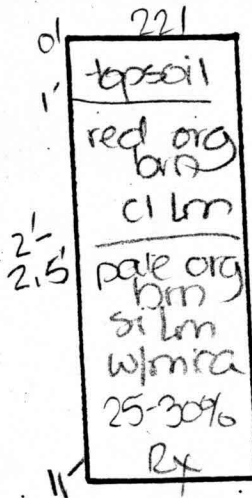 221
0'
topsoil
1'
red org
brn
cl lm
2'-
2.5'
pale org
brn
si lm
w/mica
25-30%
Rx
11'